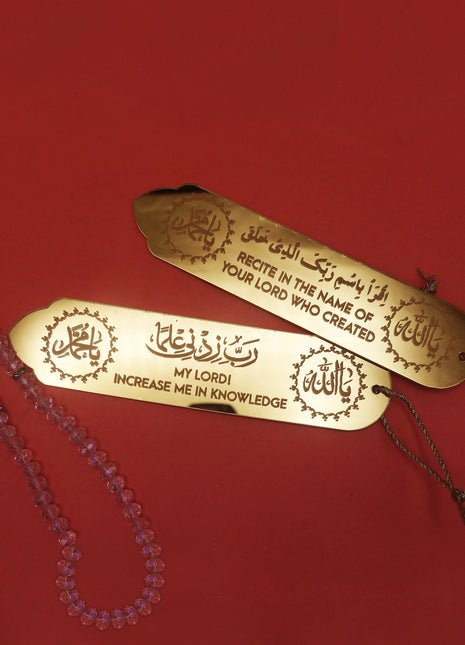 يا محمد
اقرأ باسم ربك الذي خلق
RECITE IN THE NAME OF
YOUR LORD WHO CREATED
يا الله
يا محمد
رَبِّ زِدْنِي عِلْمًا
MY LORD!
INCREASE ME IN KNOWLEDGE
يا الله